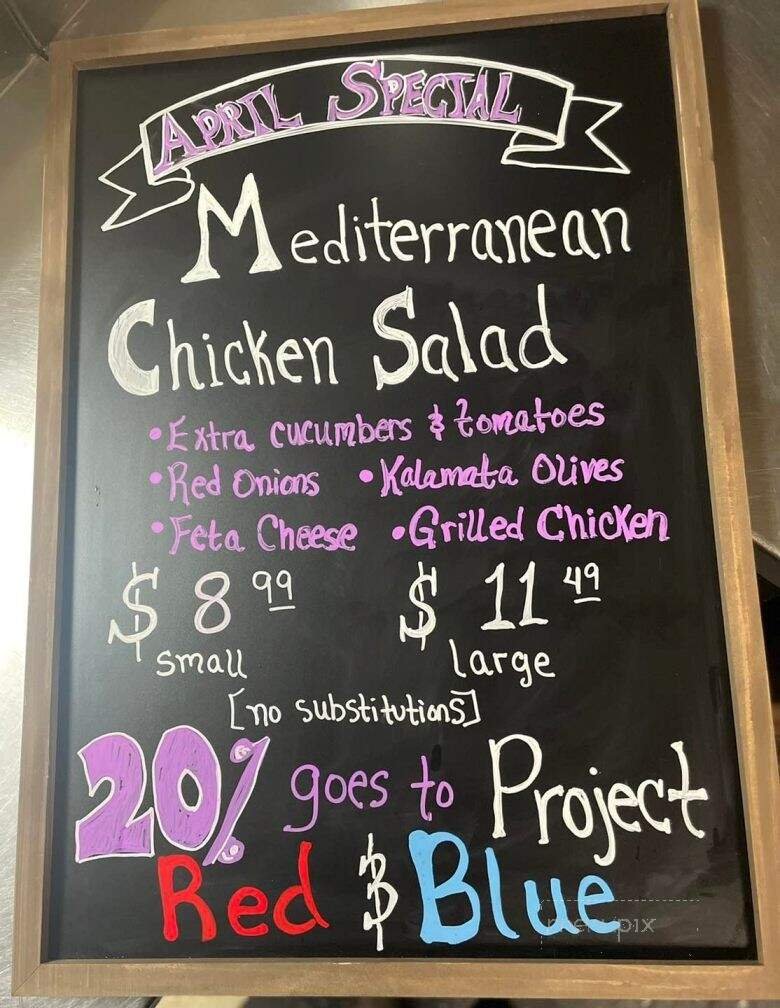 April Special
Mediterranean
Chicken Salad
• Extra cucumbers & tomatoes
• Red Onions • Kalamata Olives
• Feta Cheese • Grilled Chicken
$ 8 99 $ 11 49
small large
[no substitutions]
20% goes to Project
Red & Blue
menupix